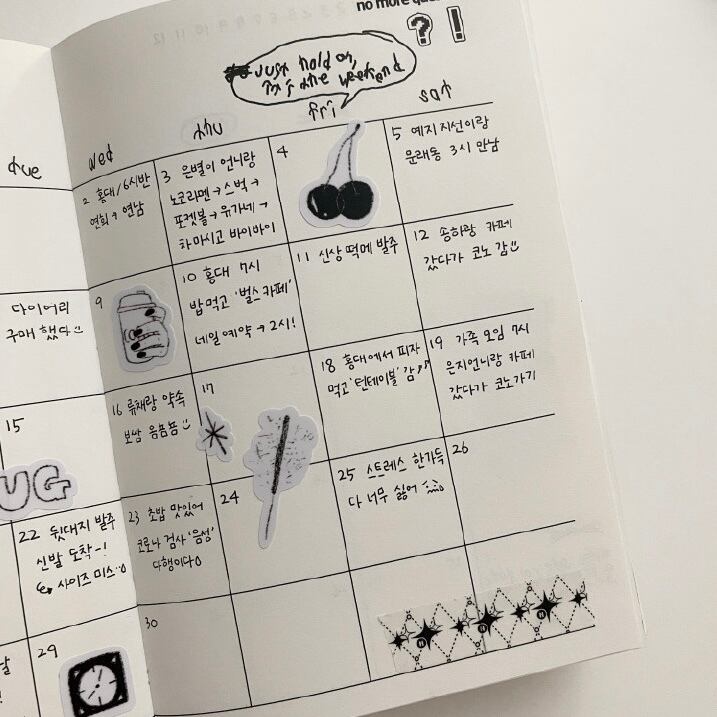 no more que
?!
Just hold on,
it's the weekend
tue
wed
thu
fri
sat
2 홍대/6시반
연희→연남
3 은별이 언니랑
노코리멘→스벅→
포켓볼→유가네→
하마시고 바이바이
4
5 예지 지선이랑
문래동 3시 만남
다이어리
구매 했다
9
10 홍대 7시
밥먹고 '벌스카페'
네일 예약→2시!
11 신상 떡메 발주
12 송하랑 카페
갔다가 코노 감
15
16 류채랑 약속
보쌈 음뇸뇸
17
18 홍대에서 피자
먹고 '턴테이블' 감
19 가족 모임 7시
은지언니랑 카페
갔다가 코노가기
UG
22 뒷대지 발주
신발 도착~!
사이즈 미스
23 초밥 맛있어
코로나 검사 '음성'
다행이다
24
25 스트레스 한가득
다 너무 싫어
26
29
30